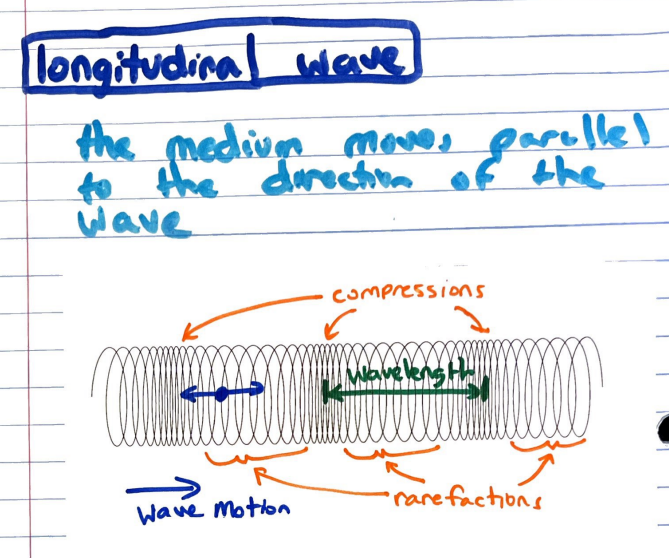 longitudinal wave
the medium moves parallel
to the direction of the
wave
compressions
wavelength
rarefactions
wave motion